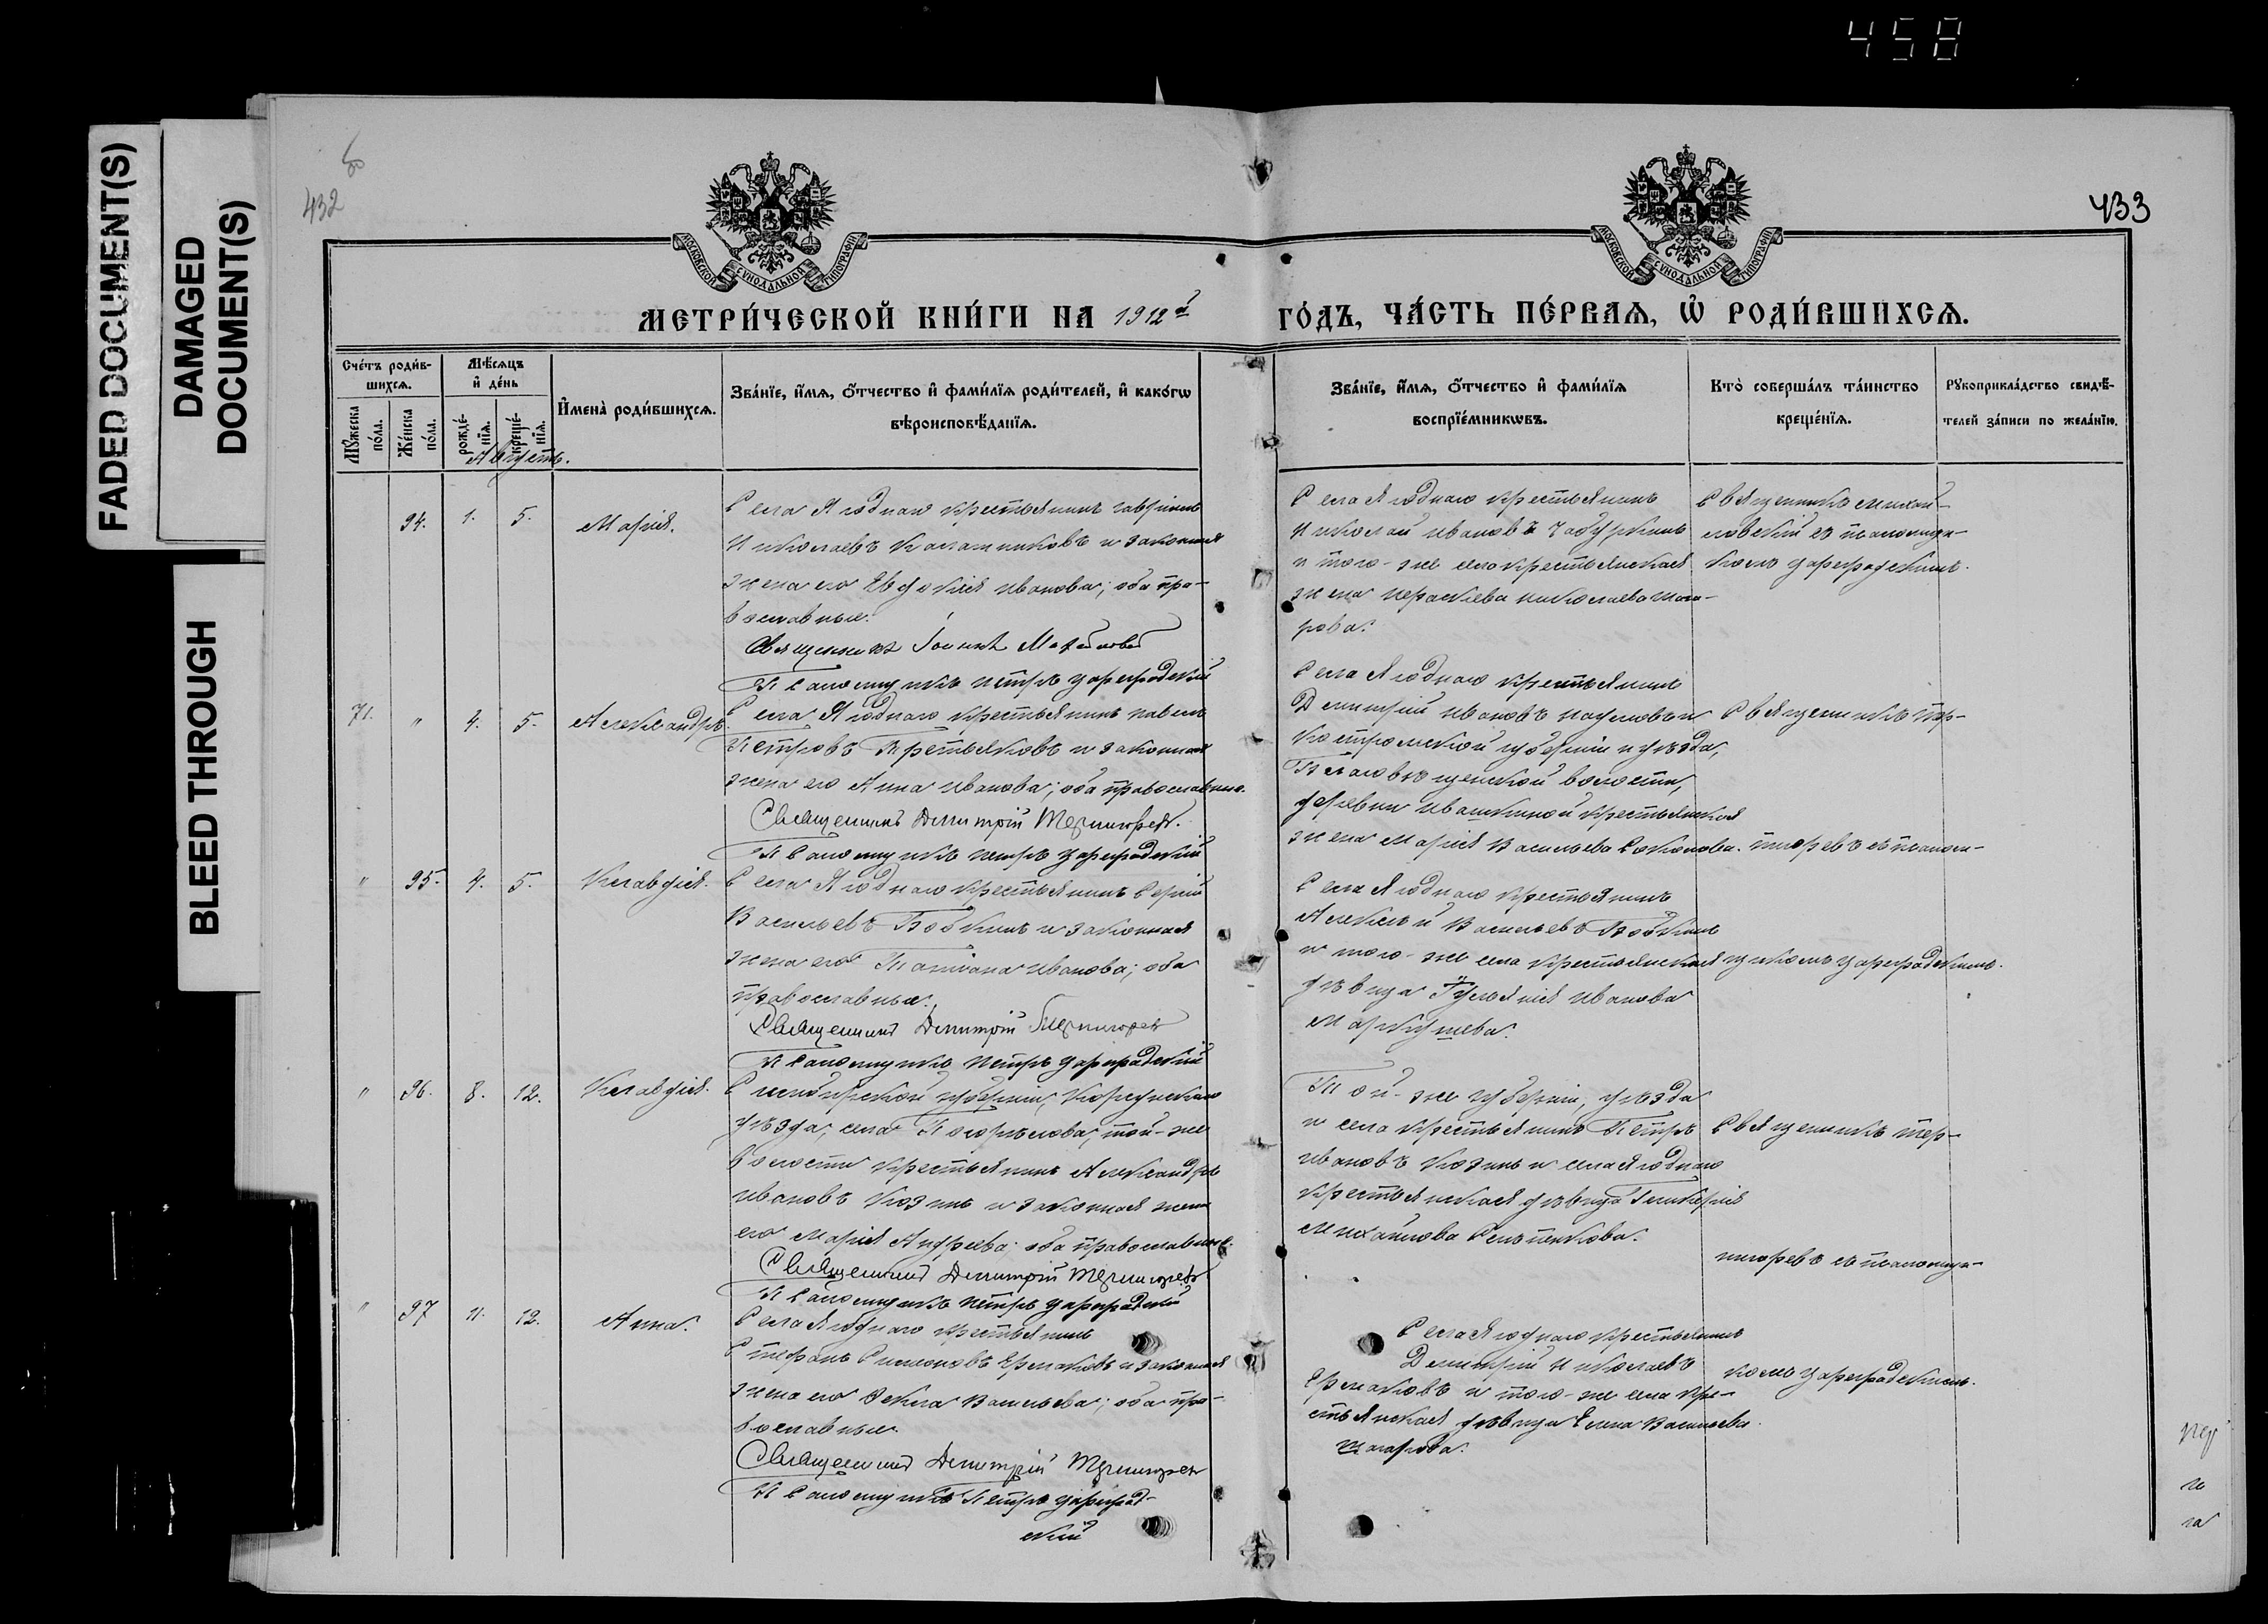 458
FADED DOCUMENT(S)
DAMAGED
DOCUMENT(S)
BLEED THROUGH
432
433
МОСКОВСКОЙ СѴНОДАЛЬНОЙ ТИПОГРАФІИ
МОСКОВСКОЙ СѴНОДАЛЬНОЙ ТИПОГРАФІИ
МЕТРИ́ЧЕСКОЙ КНИ́ГИ НА 1912й
ГО́ДЪ, ЧА́СТЬ ПЕ́РВАѦ, Ѡ҆ РОДИ́ВШИХСѦ.
Сче́тъ роди́в-
шихсѧ.
Мѣ́сѧцъ
и҆ де́нь
Мꙋ́жеска
по́ла.
Же́нска
по́ла.
рожде́-
нїѧ.
креще́-
нїѧ.
И҆мена̀ роди́вшихсѧ.
Зва́нїе, и҆́мѧ, ѻ҆́тчество и҆ фами́лїѧ роди́телей, и҆ како́гѡ
вѣроисповѣ́данїѧ.
Зва́нїе, и҆́мѧ, ѻ҆́тчество и҆ фами́лїѧ
воспрїе́мникѡвъ.
Кто̀ соверша́лъ та́инство
креще́нїѧ.
Рꙋкоприкла́дство свидѣ́-
телей за́писи по жела́нїю.
Августъ.
94. 1. 5. Марія.
Села Ягоднаго крестьянинъ Гавріилъ
Николаевъ Калашниковъ и законная
жена его Евдокія Иванова; оба пра-
вославные.
Священникъ Іоаннъ
Псаломщикъ Петръ Цареградскій
Села Ягоднаго крестьянинъ
Николай Ивановъ Чабуркинъ
и того-же села крестьянская
жена Параскева Николаева Шага-
рова.
Священникъ Михай-
ловскій съ псаломщи-
комъ Цареградскимъ.
71. " 4. 5. Александръ.
Села Ягоднаго крестьянинъ Павелъ
Петровъ Третьяковъ и законная
жена его Анна Иванова; оба православные.
Священникъ Димитрій Терпигоревъ.
Псаломщикъ Петръ Цареградскій
Села Ягоднаго крестьянинъ
Димитрій Ивановъ Наумовъ и
Костромской губерніи и уѣзда,
Благовѣщенской волости,
деревни Ивашкиной крестьянская
жена Марія Васильева Соколова.
Священникъ Тер-
пигоревъ съ псалом-
" 95. 4. 5. Клавдія.
Села Ягоднаго крестьянинъ Сергій
Васильевъ Бобкинъ и законная
жена его Татіана Иванова; оба
православные.
Священникъ Димитрій Терпигоревъ
Псаломщикъ Петръ Цареградскій
Села Ягоднаго крестьянинъ
Алексѣй Васильевъ Бобкинъ
и того-же села крестьянская
дѣвица Іуліанія Иванова
Маркушева.
щикомъ Цареградскимъ.
" 96. 8. 12. Клавдія.
Симбирской губерніи, Корсунскаго
уѣзда, села Погорѣлова, той-же
волости крестьянинъ Александръ
Ивановъ Козинъ и законная жена
его Марія Андреева; оба православные.
Священникъ Димитрій Терпигоревъ
Псаломщикъ Петръ Цареградскій
Той-же губерніи, уѣзда
и села крестьянинъ Петръ
Ивановъ Козинъ и села Ягоднаго
крестьянская дѣвица Гликерія
Михайлова
Священникъ Тер-
пигоревъ съ псаломщи-
" 97 11. 12. Анна.
Села Ягоднаго крестьянинъ
Стефанъ Симеоновъ Ермаковъ и законная
жена его Ѳекла Васильева; оба пра-
вославные.
Священникъ Димитрій Терпигоревъ
Псаломщикъ Петръ Цареград-
скій
Села Ягоднаго крестьянинъ
Димитрій Николаевъ
Ермаковъ и того-же села кре-
стьянская дѣвица Елена Васильева
Шагарова.
комъ Цареградскимъ.